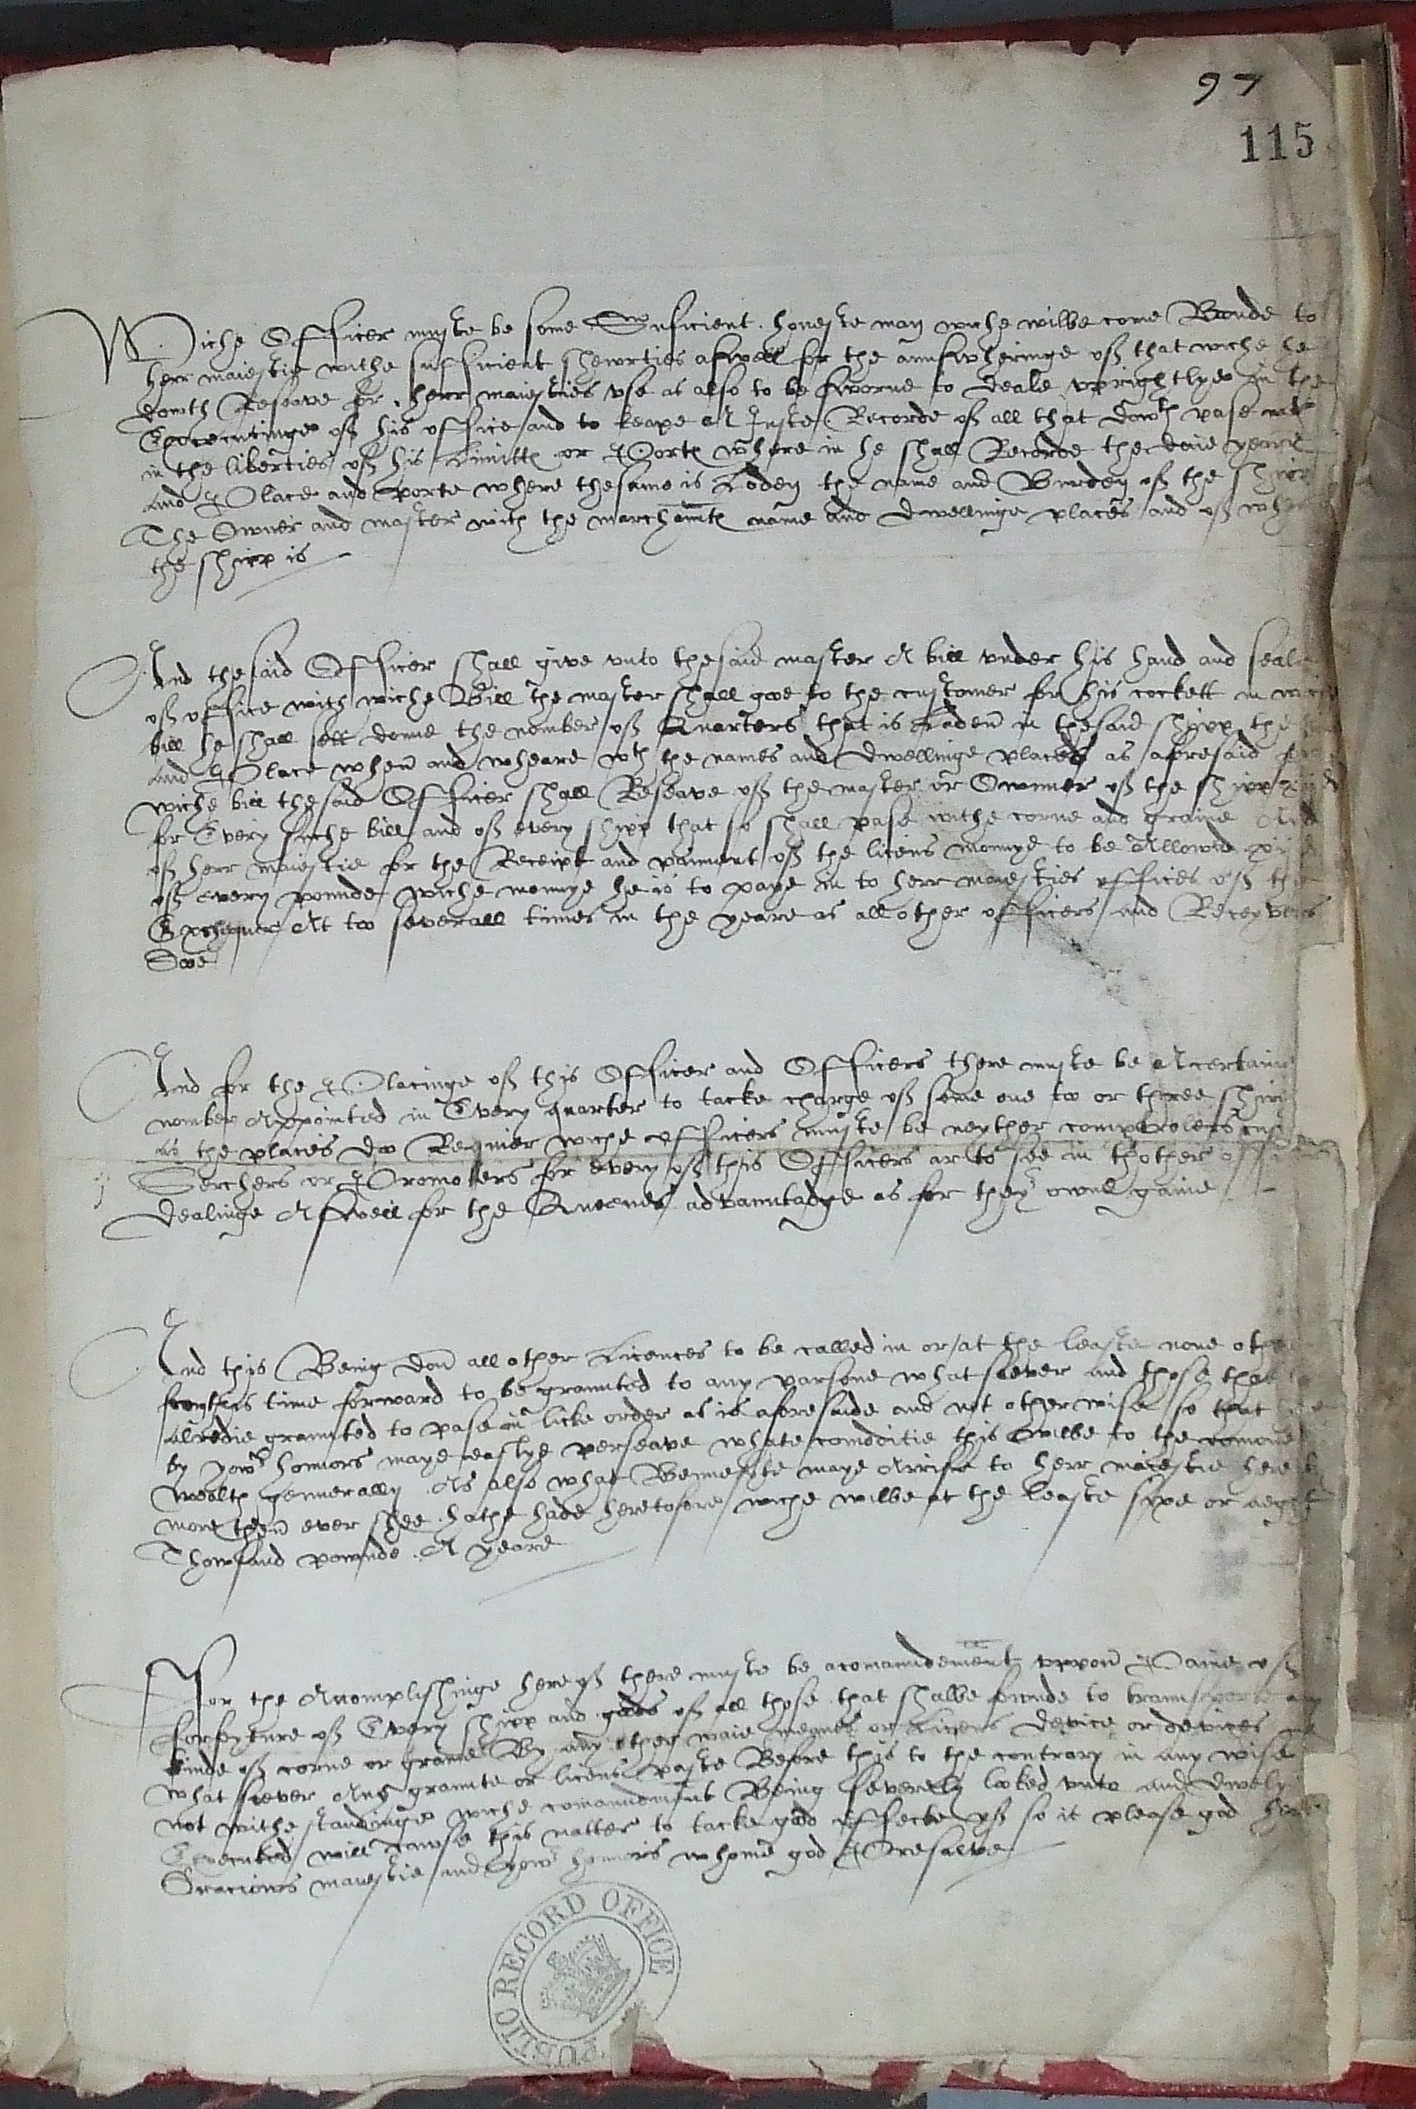 97
115
Wiche Officer muste be some Suficient honeste man wiche wilbe come Bonde to
herr maiestie withe sufficient shewrties aswell for the aunswheringe off that wiche he
dowth Reseave for herr maiesties vse as also to be sworne to deale vprightlye in the
Excecutinge off his office and to keape A Juste Recorde off all that dowth pase
in the liberties off his Limitt or Port where in he shall Recorde the daie yeare
And Place and porte where thesame is Loden the name and Burden off the shipp
The Owner and master with the marchaunt name and dwellinge places and off
the shipp is
And thesaid Officer shall give vnto thesaid master A bill vnder his hand and seale
off office with wiche Bill the master shall goe to the customer for his cockett in
bill he shall sett doune the nomber off Quarters that is Laden in thesaid shipp the
And Place when and wheare wth the names and dwellinge places as aforesaid for
wiche bill thesaid Officer shall Reseave off the master or Owner off the shipp
for Every suche bill and off every shipp that so shall pase withe corne and graine And
off herr maiestie for the Receipt and paiment off the licens monnye to be Allowed
off every pounde wiche monnye he is to paye in to herr maiesties offices off the
Exchequer At too severall times in the yeare as all other officers and Receyvers
Doe
And for the Placinge off this Officer and Officers there muste be A certaine
nomber Appointed in Every quarter to tacke charge off some one too or three
as the places doo Requier wiche officers muste be neyther comptrolers
Serchers or Promoters for every off this Officers ar to see in thother
dealinge Aswell for the Queenes advauntadge as for theyr owne gaine
And this Being don all other Licences to be called in or at the leaste none other
from this time forward to be graunted to any parsone what soever and those that
alredie graunted to pase in licke order as is aforesaide and not other wise so that
by yowr honnors maye easlye perseave whate comoditie this wilbe to the comone
wealth gennerally As also what Bennefite maye Arrise to herr maiestie here by
more then ever shee hathe hade heretofore wiche wilbe at the leaste sixe or aeght
Thowsand pownde A yeare
For the Acomplishinge here off there muste be acomaundement vppon Paine off
forfyture off Every shipp and goods off all those that shalbe founde to transporte any
kinde off corne or graine By any other waie meanes or Licens device or devices
what soever Any graunte or licens paste Before this to the contrary in any wise
not withe standinge wiche comaundment Being severely looked vnto and dwely
Executed will cawse this matter to tacke good effecte yff so it please god herr
Gracious maiestie and yowr honnors whome god Preserve
PUBLIC RECORD OFFICE